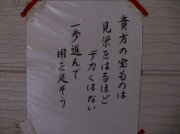 貴方の宝ものは
見栄をはるほど
デカくはない
一歩進んで
用を足そう